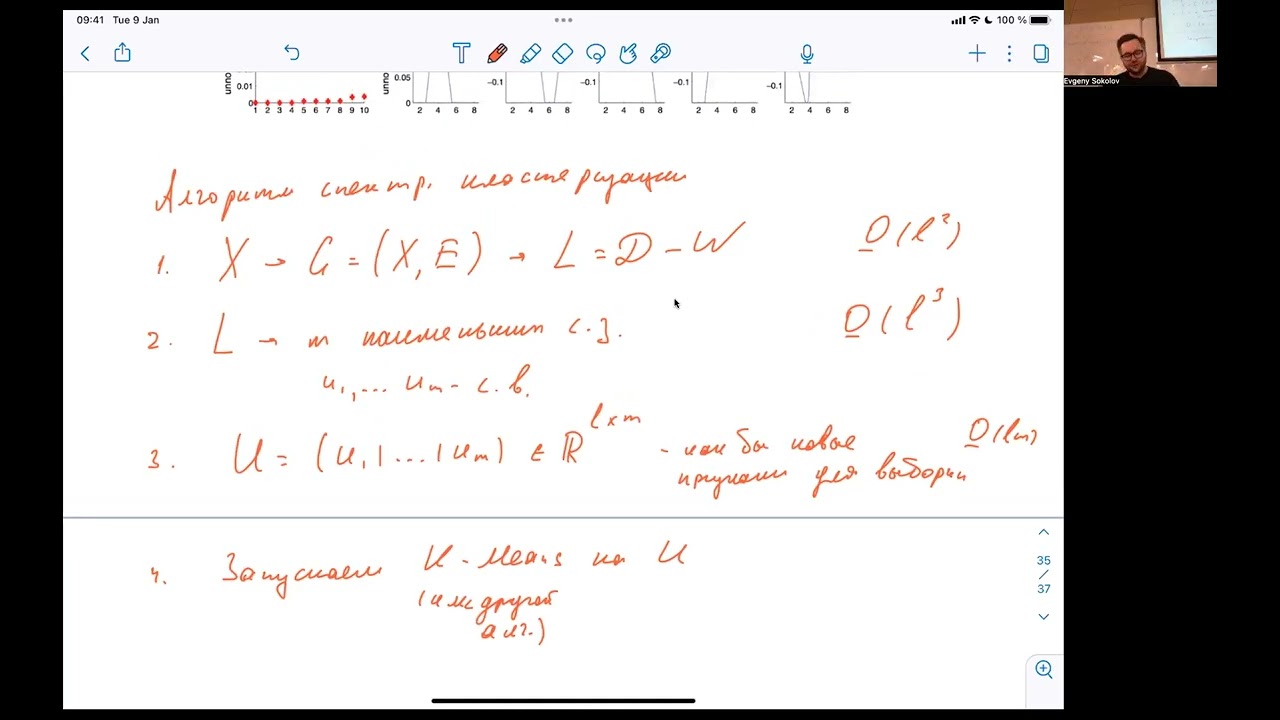 09:41 Tue 9 Jan
100 %
Evgeny Sokolov
0.01
0.05
-0.1
-0.1
-0.1
-0.1
0
0
1 2 3 4 5 6 7 8 9 10
2 4 6 8
2 4 6 8
2 4 6 8
2 4 6 8
2 4 6 8
Алгоритм спектр. кластеризации
1. X → G = (X, E) → L = D - W O(l²)
2. L → m наименьших с.з. O(l³)
u₁,... uₘ - с.в.
3. U = (u₁|...|uₘ) ∈ ℝ^{l×m} - как бы новые O(lm)
признаки для выборки
4. Запускаем K-Means на U
(или другой
алг.)
35
/
37